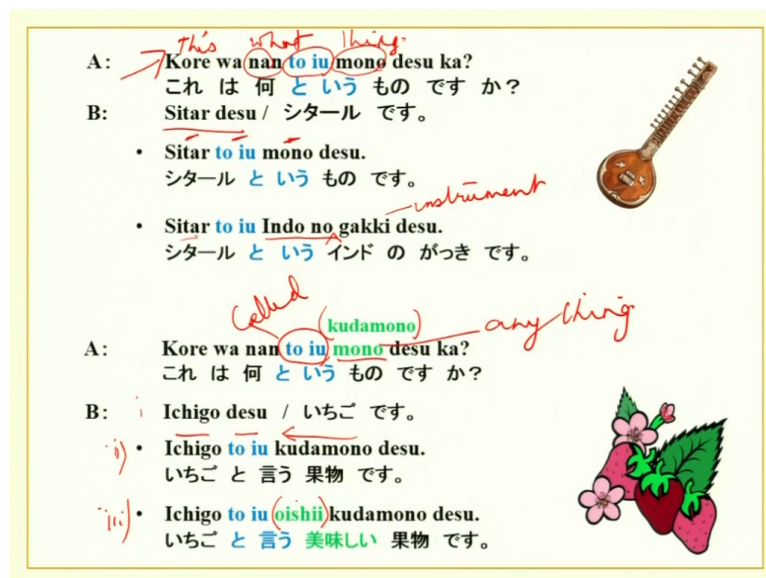 this what thing.
A: Kore wa nan to iu mono desu ka?
これ は 何 と いう もの です か?
B: Sitar desu / シタール です。
• Sitar to iu mono desu.
シタール と いう もの です。
instrument
• Sitar to iu Indo no gakki desu.
シタール と いう インド の がっき です。
Called
(kudamono)
any thing
A: Kore wa nan to iu mono desu ka?
これ は 何 と いう もの です か?
B: i Ichigo desu / いちご です。
ii) • Ichigo to iu kudamono desu.
いちご と 言う 果物 です。
iii) • Ichigo to iu (oishii) kudamono desu.
いちご と 言う 美味しい 果物 です。